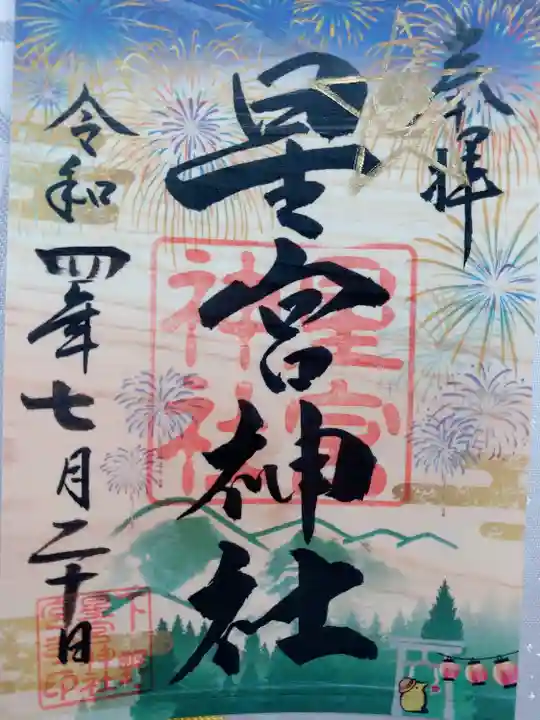 奉拝
星宮神社
令和四年七月二十日
星宮
神社
下野
星宮神社
宮司印